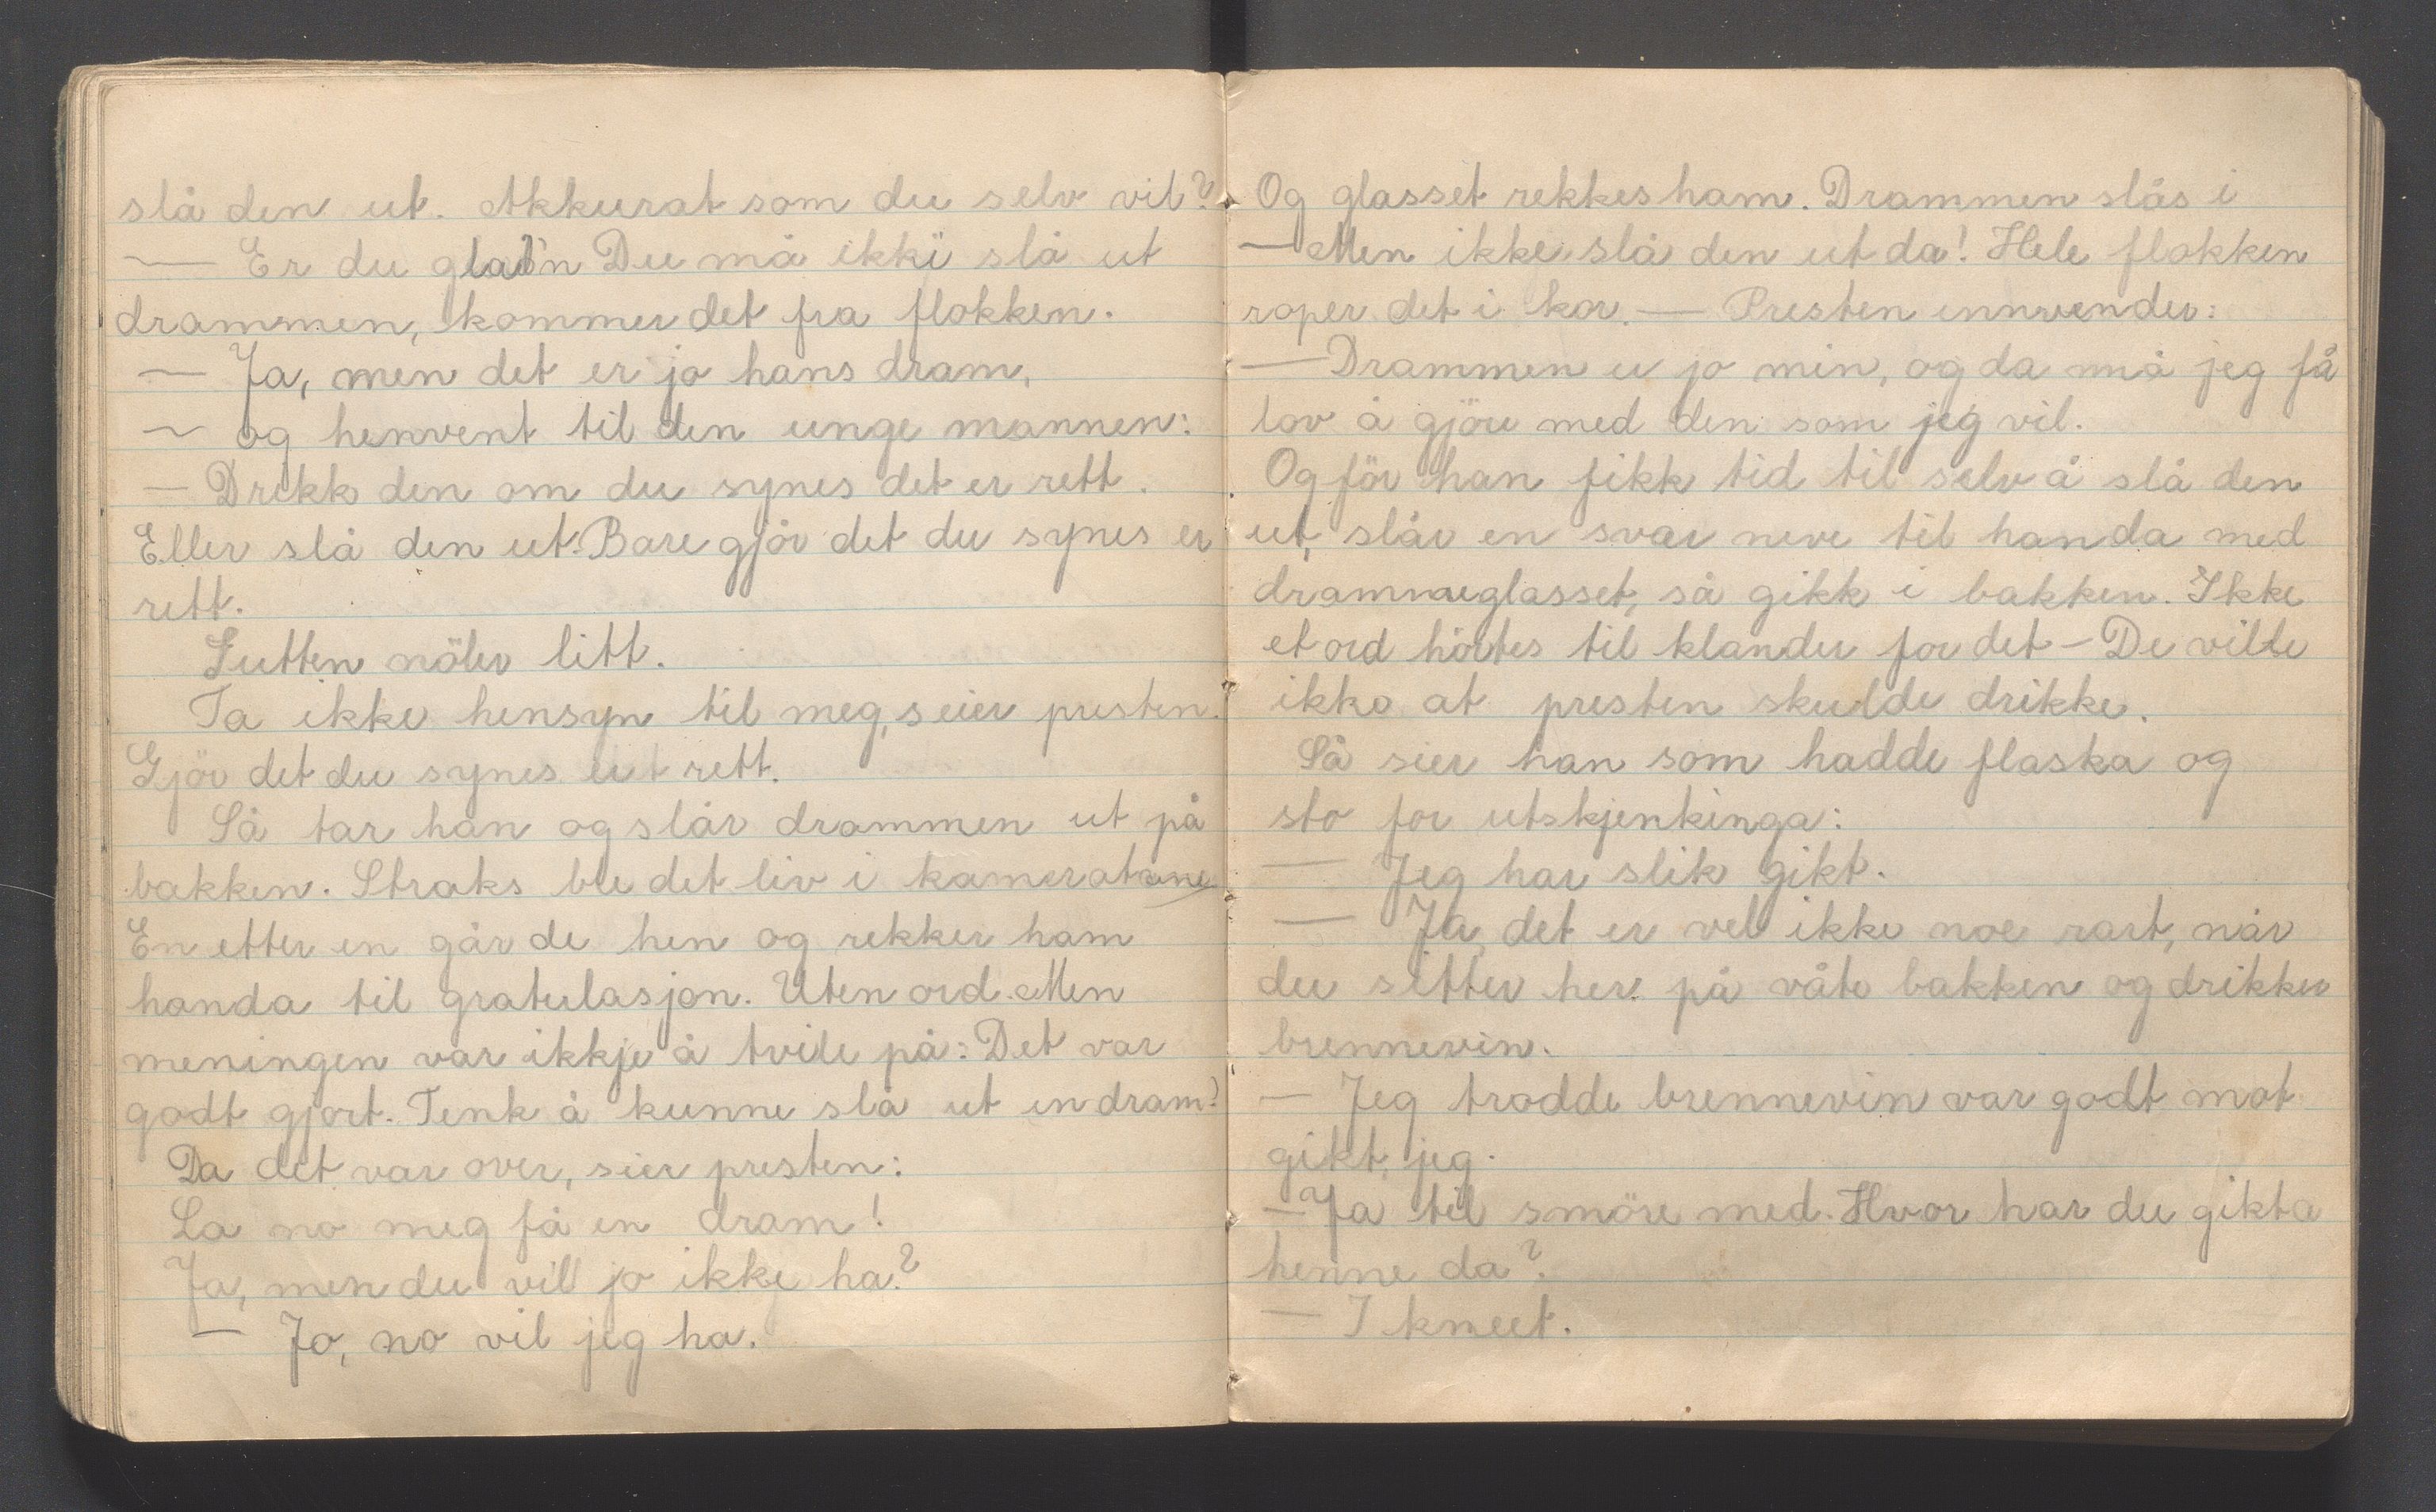 slå den ut. Akkurat som du selv vil?
— Er du gla'n Du må ikki slå ut
drammen, kommer det fra flokken.
— Ja, men det er jo hans dram,
— og henvent til den unge mannen:
— Drikk den om du synes det er rett.
Eller slå den ut. Bare gjör det du synes er
rett.
Gutten nöler litt.
Ta ikke hensyn til meg, seier presten.
Gjör det du synes er rett.
Så tar han og slår drammen ut på
bakken. Straks ble det liv i kameratene
En etter en går de hen og rekker ham
handa til gratulasjon. Uten ord. Men
meningen var ikkje å tvile på: Det var
godt gjort. Tenk å kunne slå ut en dram!
Da det var over, sier presten:
La no meg få en dram!
Ja, men du vill jo ikke ha?
— Jo, no vil jeg ha.
Og glasset rekkes ham. Drammen slås i
— Men ikke slå den ut da! Hele flokken
roper det i kor. — Presten innvender:
— Drammen er jo min, og da må jeg få
lov å gjöre med den som jeg vil.
Og för han fikk tid til selv å slå den
ut, slår en svær neve til handa med
drammeglasset, så gikk i bakken. Ikke
et ord hörtes til klander for det — De vilde
ikke at presten skulde drikke.
Så sier han som hadde flaska og
sto for utskjenkinga:
— Jeg har slik gikt.
— Ja, det er vel ikke noe rart, når
du sitter her på våte bakken og drikker
brennevin.
— Jeg trodde brennevin var godt mot
gikt, jeg.
— Ja til smöre med. Hvor har du gikta
henne da?
— I kneet.